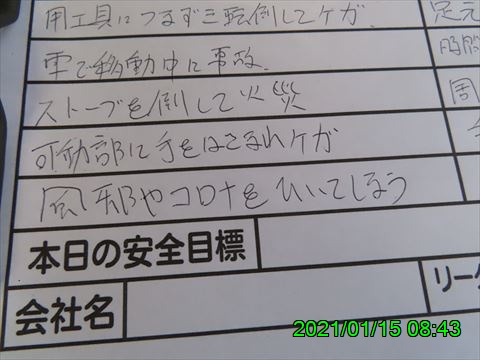 用工具につまずき転倒してケガ. 足元
車で移動中に事故.
ストーブを倒して火災 周
可動部に手をはさまれケガ
風邪やコロナをひいてしまう
本日の安全目標
会社名 リーダ
2021/01/15 08:43